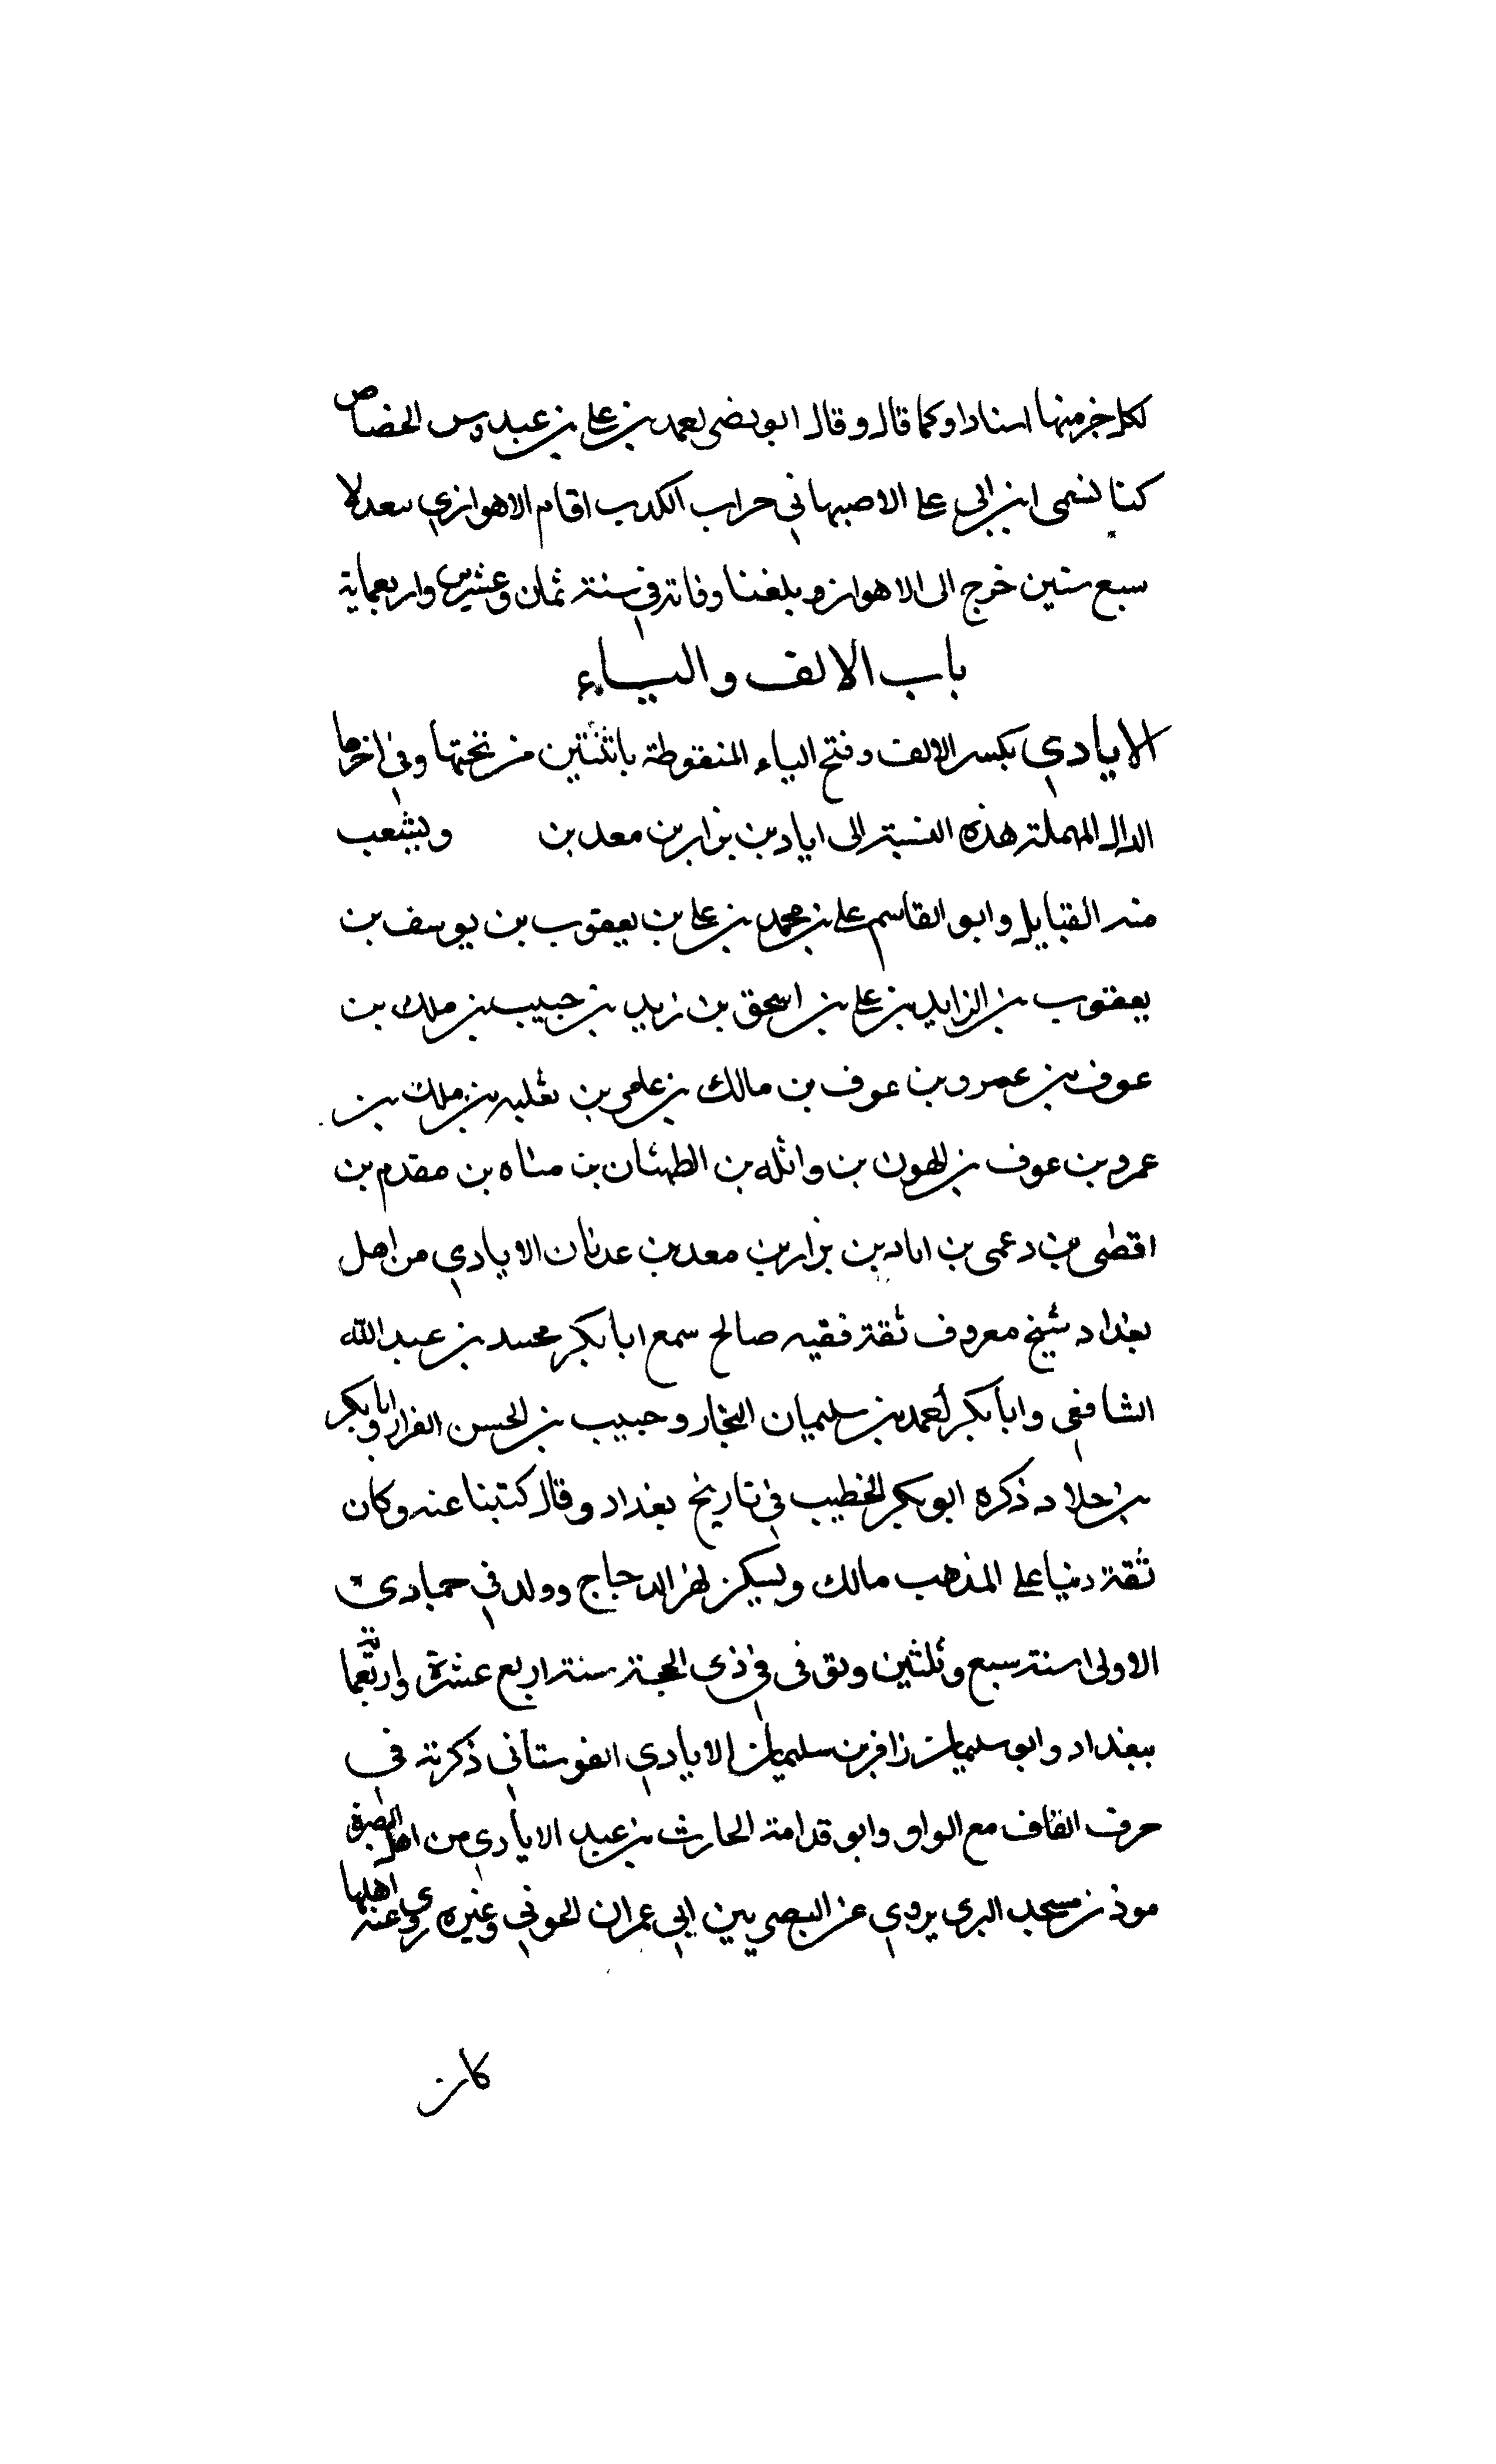 لكل خبر منها اسنادا وكما قال وقال ابو نصر احمد بن علي بن عبدوس الحصاص
كنا نسمى ابن ابي علي الاصبهاني حراب الكدب اقام الاهوازي ببغداد
سبع سنين خرج الى الاهواز وبلغنا وفاته في سنة ثمان وعشرين واربعماية
باب الالف والياء
الايادي بكسر الالف وفتح الياء المنقوطة باثنتين من تحتها وفي اخرها
الدال المهملة هذه النسبة الى اياد بن نزار بن معد بن ويتشعب
منه القبايل وابو القاسم علي بن محمد بن علي بن يعقوب بن يوسف بن
يعقوب بن الزايد بن علي بن اسحق بن زيد بن حبيب بن ملك بن
عوف بن عمرو بن عوف بن مالك بن علمي بن ثعلبه بن ملك بن
عمرو بن عوف بن الهون بن واثله بن الطمثان بن مناه بن مقدم بن
اقصى بن دعمى بن اياد بن نزار بن معد بن عدنان الايادي من اهل
بغداد شيخ معروف ثقة فقيه صالح سمع ابا بكر محمد بن عبد الله
الشافعي وابا بكر احمد بن سليمان النجار وحبيب بن الحسن القزاز وابا بكر
بن خلاد ذكره ابو بكر الخطيب في تاريخ بغداد وقال كتبنا عنه وكان
ثقة دينا على المذهب مالك ويسكن نهر الدجاج وولد في جمادى
الاولى سنة سبع وثلثين وتوفى في ذى الحجة سنة اربع عشرة واربعماية
ببغداد وابو سليمان زافر بن سليمان الايادي القوستاني ذكرته في
حرف القاف مع الواو وابو قدامة الحارث بن عبيد الايادي من اهل البصرة
موذن مسجد البرى يروي عن البصريين ابي عمران الجوني وغيره روى عنه اهلها
كان